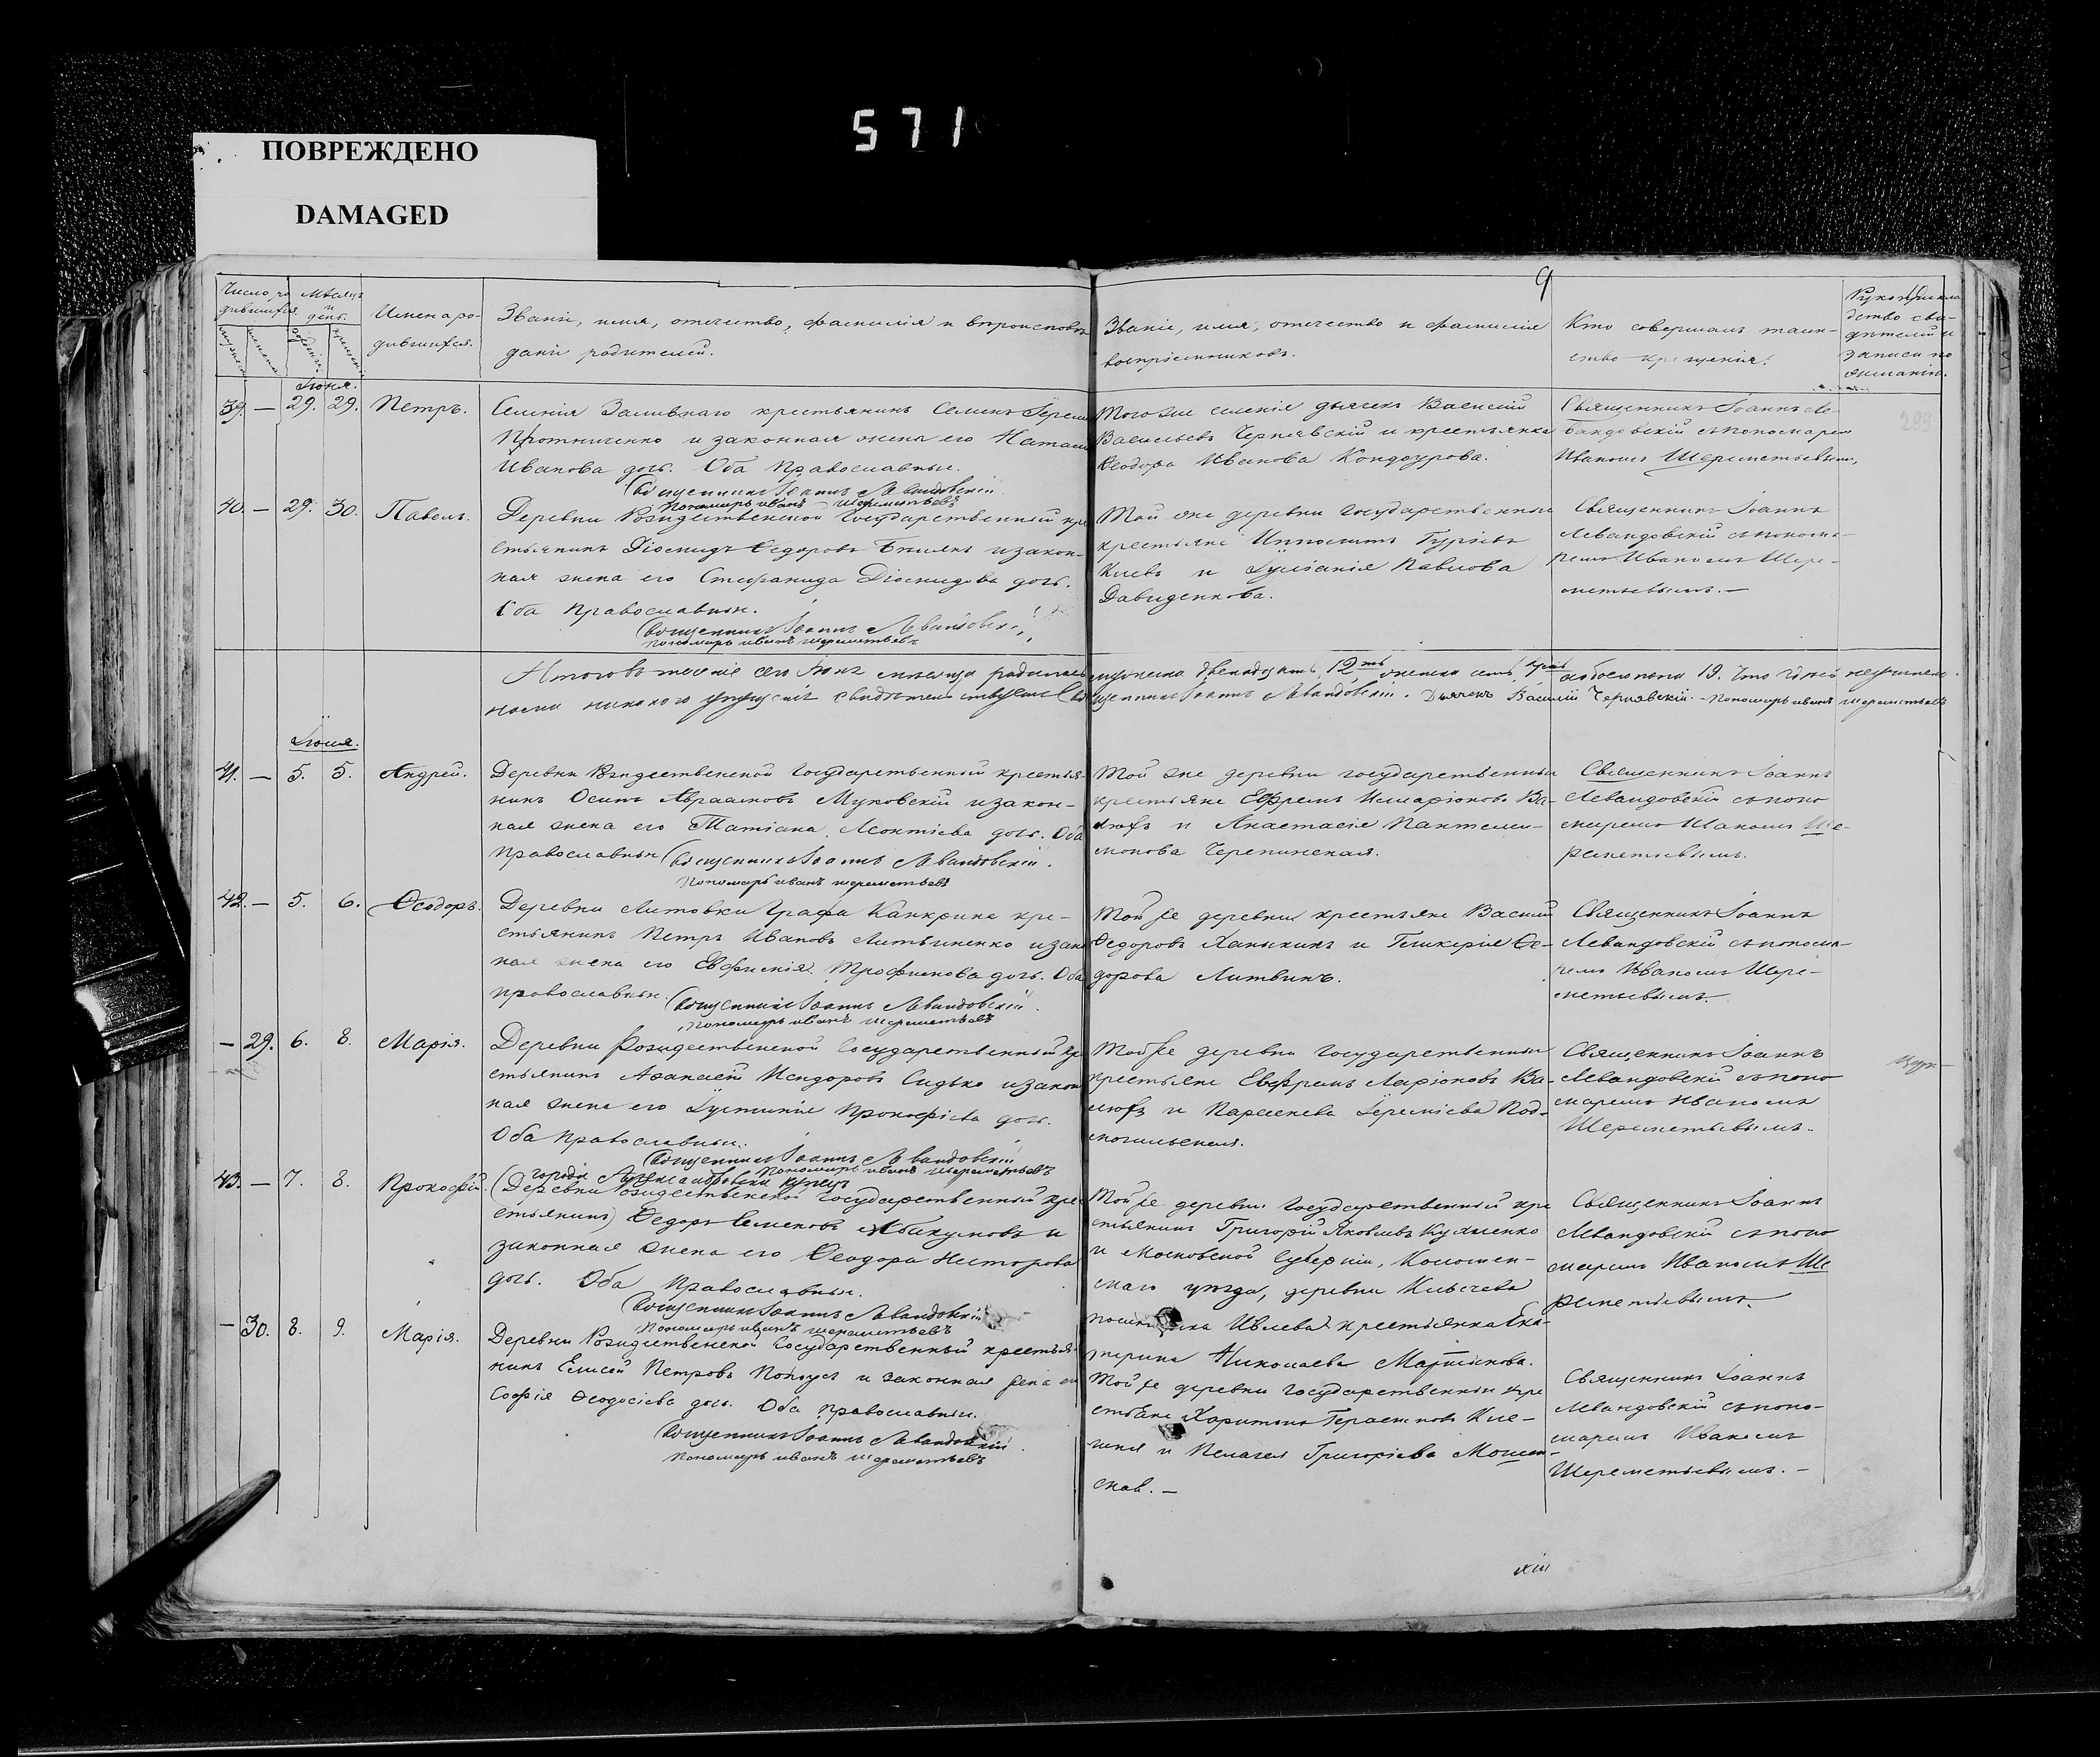 571
ПОВРЕЖДЕНО
DAMAGED
9
Имена ро-
дившихся.
Званіе, имя, отечество, фамилія и вѣроисповѣ
даніе родителей.
Званіе, имя, отечество и фамилія
воспріемниковъ.
Кто совершалъ таин-
ство крещенія.
299
39. — 29. 29. Петръ.
Селенія Заливнаго крестьянинъ Семенъ
и законная жена его
Иванова дочь. Оба Православные.
Священникъ Іоаннъ Левандовскій
Пономарь иванъ шереметьевъ
Того же селенія дьячекъ Василій
Васильевъ Чернявскій и крестьянка
Ѳеодора Иванова Кондоурова.
Священникъ Іоаннъ Ле-
вандовскій съ пономарем
Иваномъ Шереметьевымъ,
40. — 29. 30. Павелъ.
Деревни Рождественской Государственный кре
стьянинъ Діомидъ Ѳедоровъ и закон-
ная жена его Стефанида Діомидова дочь.
Оба Православны.
Священникъ Іоаннъ Левандовскій
пономарь иванъ шереметьевъ
Той же деревни Государственные
крестьяне Ипполитъ Гурьевъ
Киевъ и Іуліанія Павлова
Давиденкова.
Священникъ Іоаннъ
Левандовскій съ понома-
ремъ Иваномъ Шере-
метьевымъ. —
Итого въ теченіе сего Іюнь мѣсяца родилось
мужеска двенадцать, 12ть, женска семь, 7мь обоего пола 19. Что
никакого свидѣтельствуемъ
Священникъ Іоаннъ Левандовскій. Дьячекъ Василій Чернявскій. — Пономарь иванъ шереметьевъ
Іюля.
41. — 5. 5. Андрей.
Деревни Рождественской Государственный крестья-
нинъ Осипъ Авраамовъ Муковскій и закон-
ная жена его Татіана Леонтіева дочь. Оба
православны Священникъ Іоаннъ Левандовскій.
Пономарь иванъ шереметьевъ
Той же деревни государственные
крестьяне Ефремъ Илларіоновъ Ва-
и Анастасія Пантели-
монова Черепинская.
Священникъ Іоаннъ
Левандовскій съ поно
маремъ Иваномъ Ше-
реметьевымъ.
42. — 5. 6. Ѳеодоръ.
Деревни Литовки Графа Канкрина кре-
стьянинъ Петръ Ивановъ Литвиненко и закон
ная жена его Евфимія Трофимова дочь. Оба
православны. Священникъ Іоаннъ Левандовскій.
Пономарь иванъ шереметьевъ
Той же деревни крестьяне Василій
Ѳедоровъ Ханыкинъ и Гликерія Ѳе-
дорова Литвинъ.
Священникъ Іоаннъ
Левандовскій съ понома-
ремъ Иваномъ Шере-
метьевымъ.
— 29. 6. 8. Марія.
Деревни Рождественской Государственный кре
стьянинъ Аѳанасій Исидоровъ Сидько и закон
ная жена его Іустинія Прокофіева дочь.
Оба Православны.
Священникъ Іоаннъ Левандовскій
Пономарь иванъ шереметьевъ
Той же деревни Государственные
крестьяне Евфремъ Ларіоновъ Ва-
и Параскева Іереміева Под-
могильская.
Священникъ Іоаннъ
Левандовскій съ поно
маремъ Иваномъ
Шереметьевымъ.
43. — 7. 8. Прокофій.
города купецъ
(Деревни Рождественской Государственный кре
стьянинъ) Ѳедоръ Семеновъ Абакумовъ и
законная жена его Ѳеодора Несторова
дочь. Оба Православны.
Священникъ Іоаннъ Левандовскій
Пономарь иванъ шереметьевъ
Той же деревни Государственный кре
стьянинъ Григорій Яковлевъ
и Московской Губерніи, Коломен-
скаго уѣзда, деревни
Ивлева крестьянка Ека-
терина Николаева Мартынова.
Священникъ Іоаннъ
Левандовскій съ поно
маремъ Иваномъ Ше
реметьевымъ.
— 30. 8. 9. Марія.
Деревни Рождественской Государственный крестья-
нинъ Елисей Петровъ и законная жена его
Софія Ѳеодосіева дочь. Оба православны.
Священникъ Іоаннъ Левандовскій
Пономарь иванъ шереметьевъ
Той же деревни Государственные кре
стьяне Харитонъ Герасимовъ
и Пелагея Григоріева
Священникъ Іоаннъ
Левандовскій съ поно-
маремъ Иваномъ
Шереметьевымъ. —